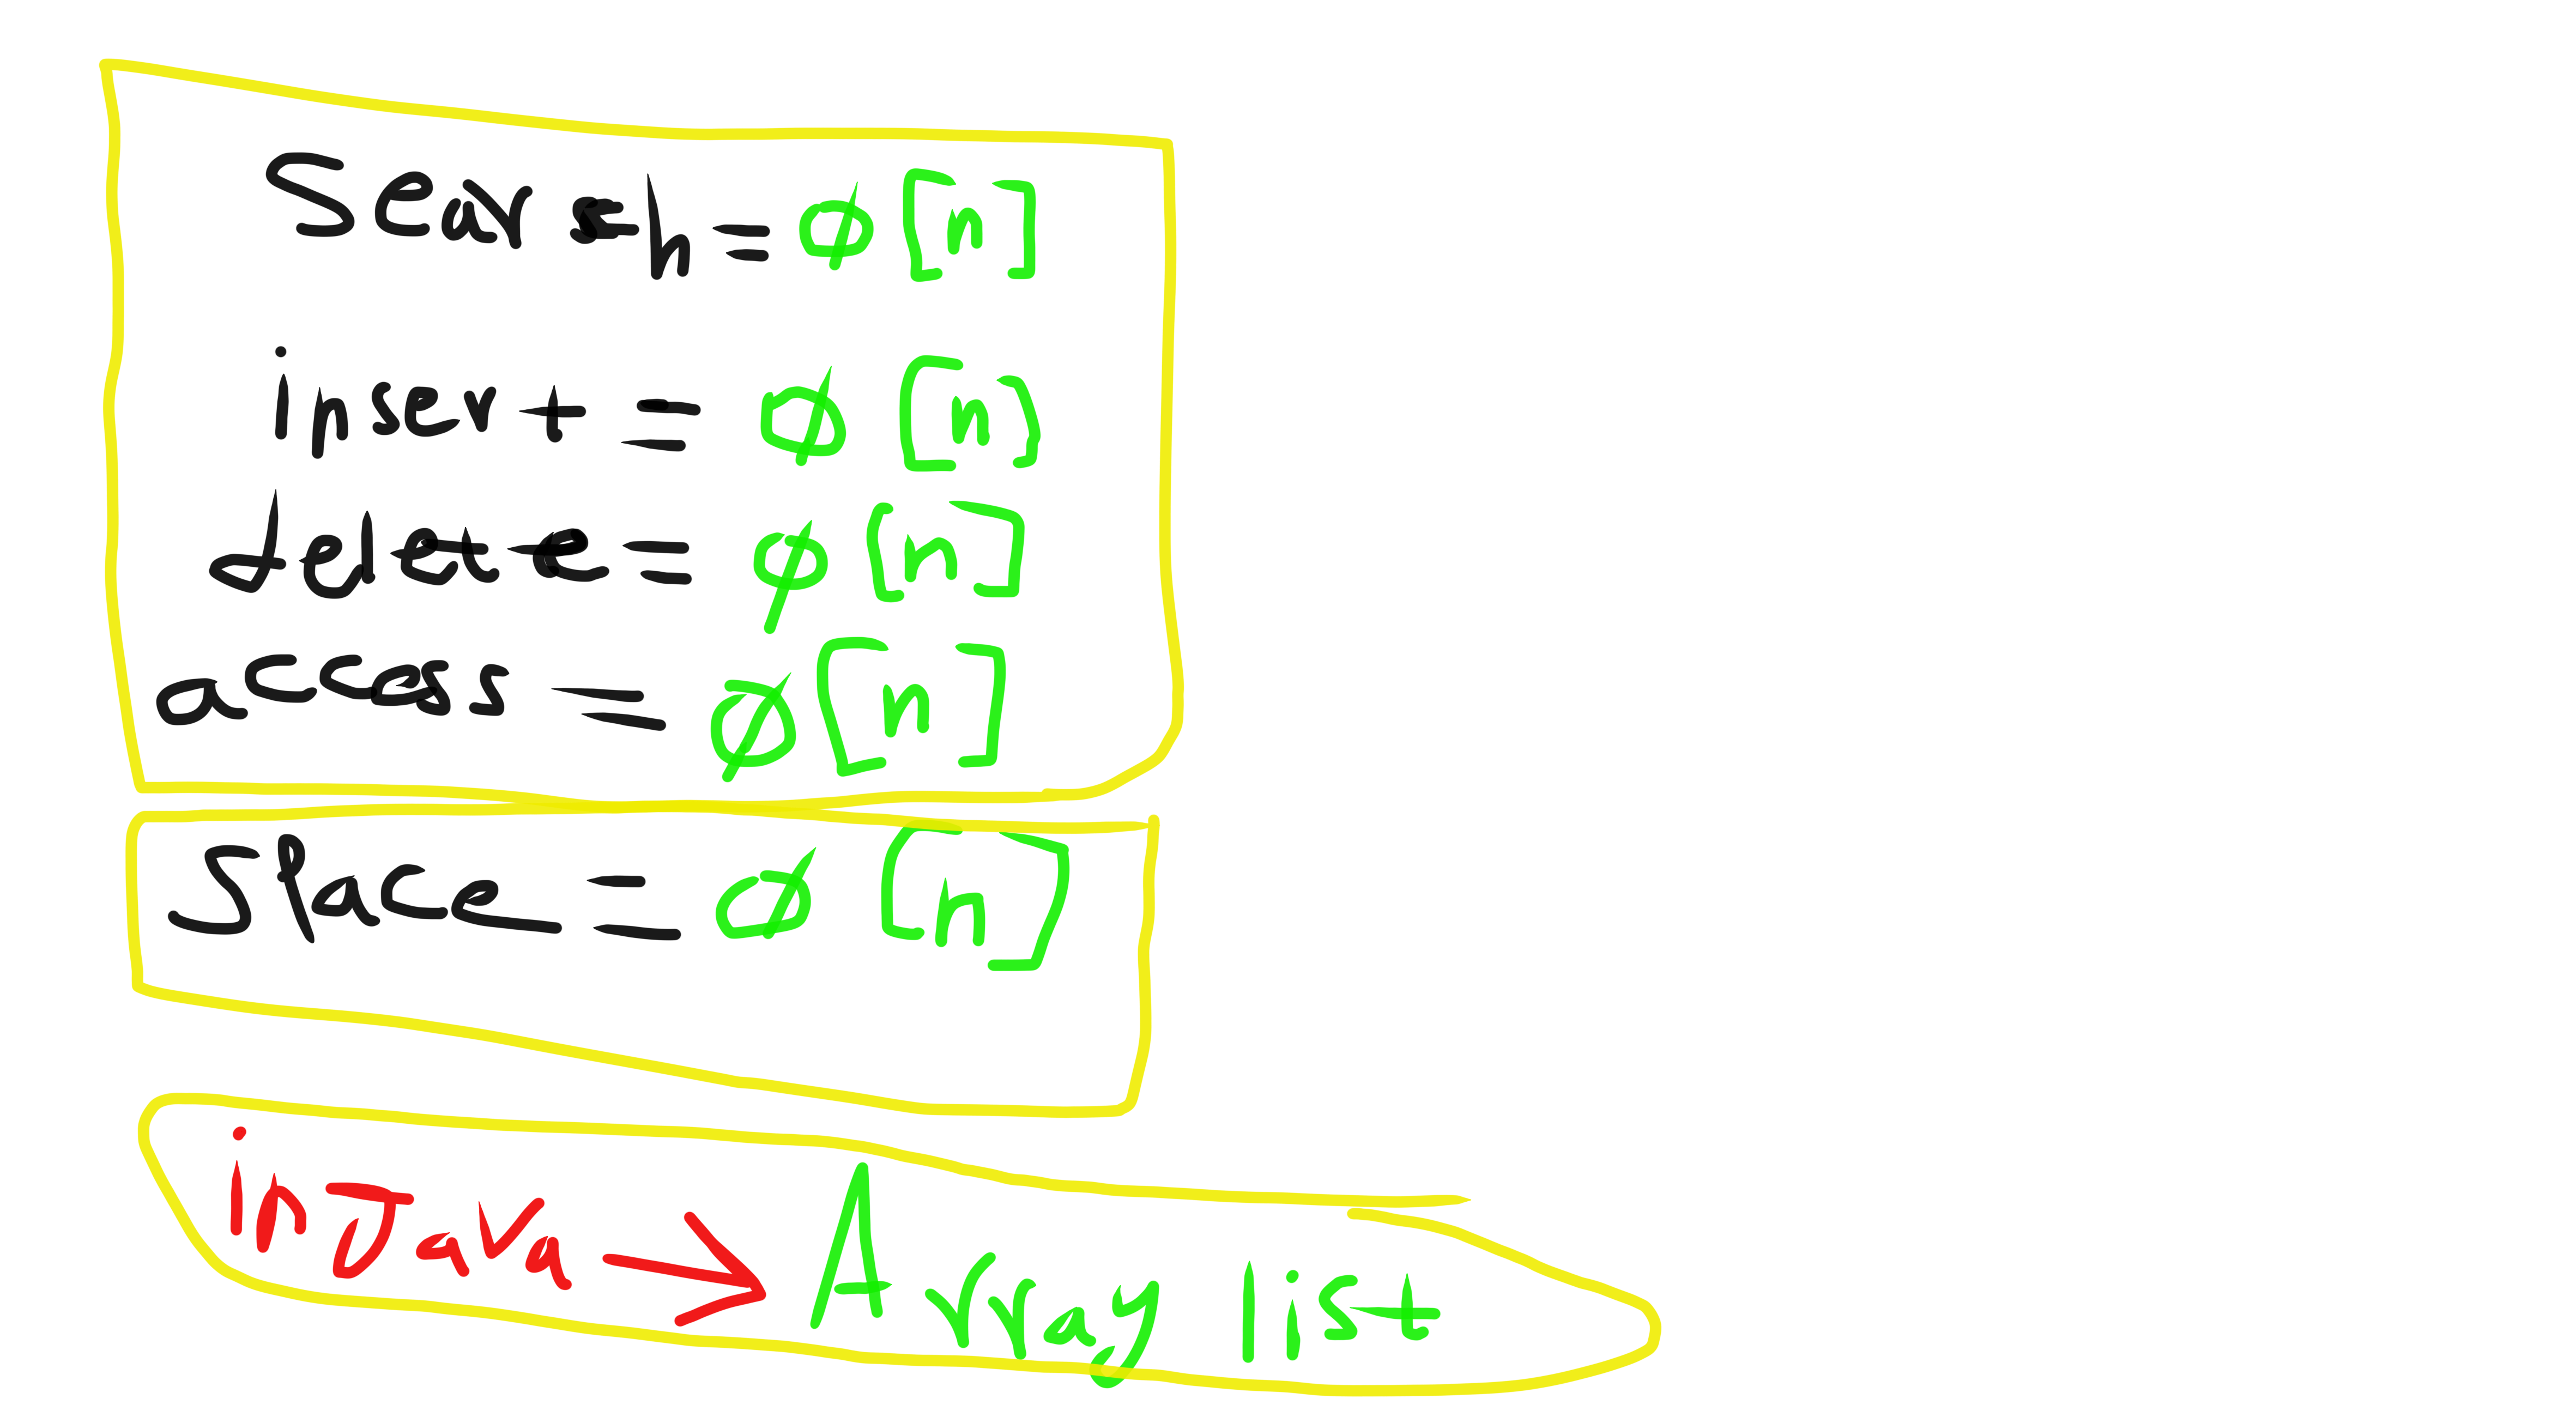 Search = ϕ [n]
insert = ϕ [n]
delete = ϕ [n]
access = ϕ [n]
Space = ϕ [n]
in Java → Array list